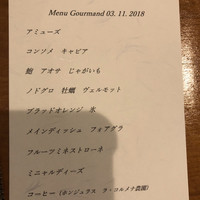 Menu Gourmand 03. 11. 2018
アミューズ
コンソメ　キャビア
鮑　アオサ　じゃがいも
ノドグロ　牡蠣　ヴェルモット
ブラッドオレンジ　氷
メインディッシュ　フォアグラ
フルーツミネストローネ
ミニャルディーズ
コーヒー (ホンジュラス　ラ・コルメナ農園)